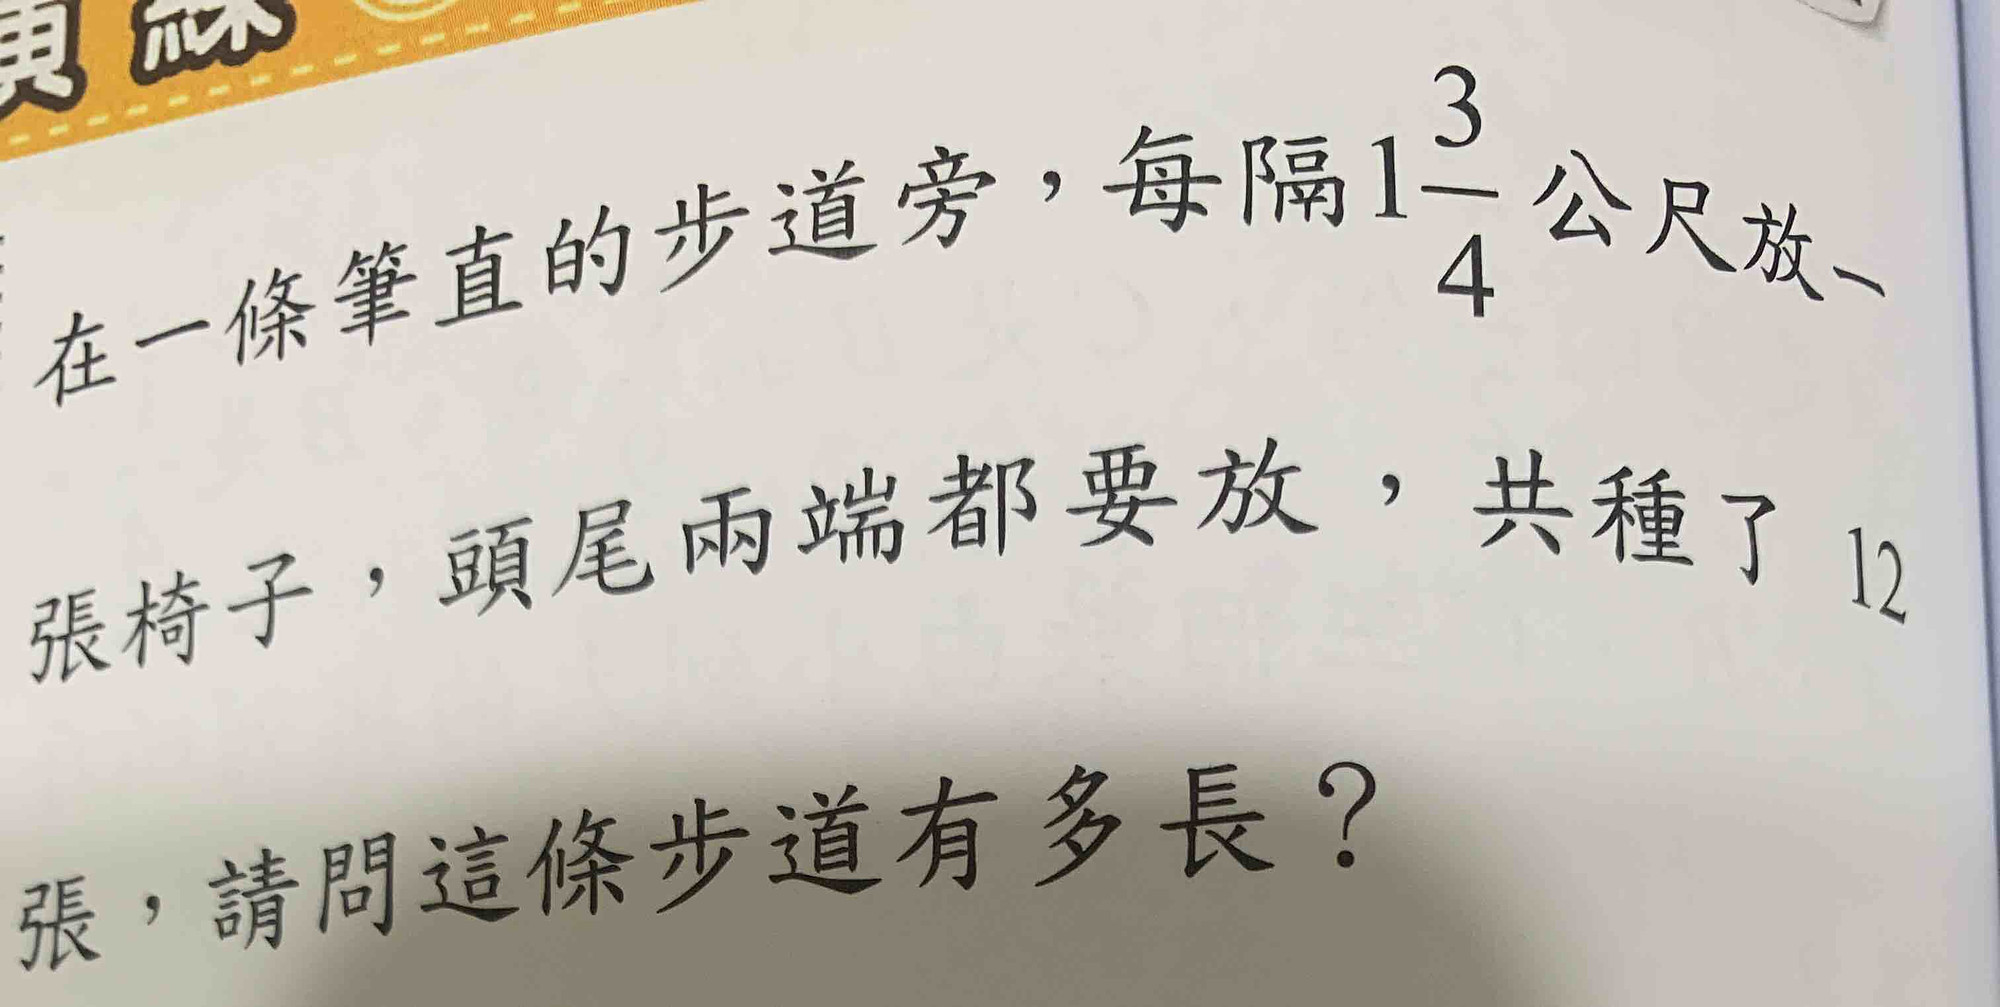 演練
在一條筆直的步道旁，每隔1 3/4公尺放一
張椅子，頭尾兩端都要放，共種了12
張，請問這條步道有多長？